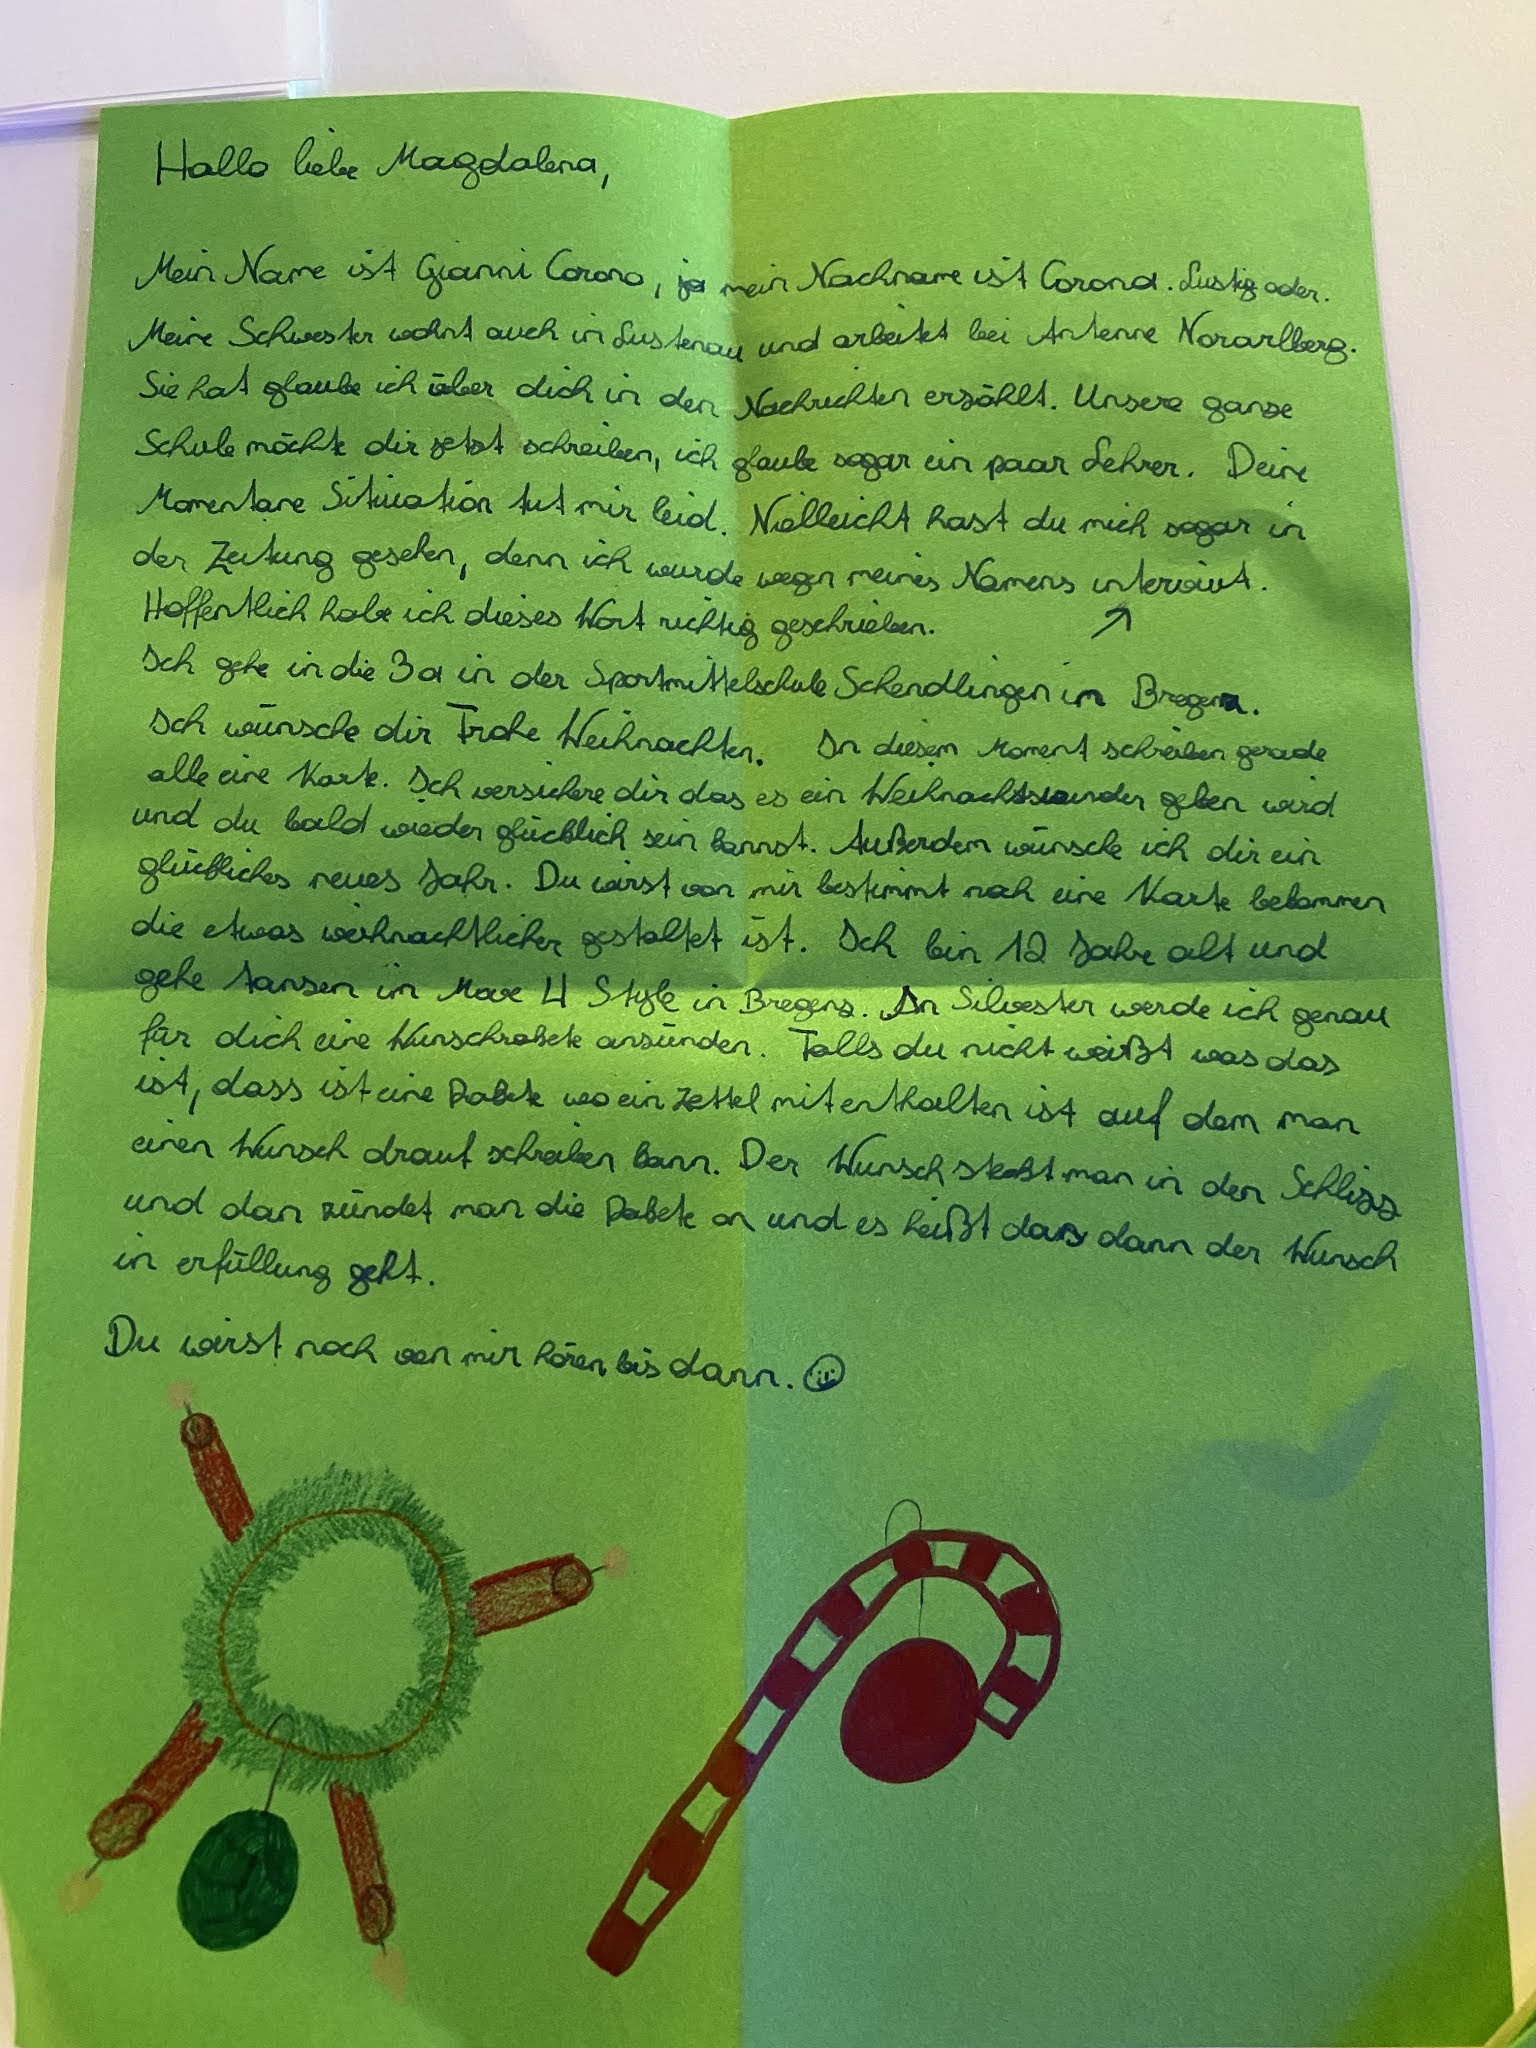 Hallo liebe Magdalena,
Mein Name ist Gianni Corona, ja mein Nachname ist Corona. Lustig oder.
Meine Schwester wohnt auch in Lustenau und arbeitet bei Antenne Vorarlberg.
Sie hat glaube ich über dich in den Nachrichten erzählt. Unsere ganze
Schule möchte dir jetzt schreiben, ich glaube sogar ein paar Lehrer. Deine
Momentane Situation tut mir leid. Vielleicht hast du mich sogar in
der Zeitung gesehen, denn ich wurde wegen meines Namens interviut.
Hoffentlich habe ich dieses Wort richtig geschrieben. ↗
Ich gehe in die 3a in der Sportmittelschule Schendlingen in Bregenz.
Ich wünsche dir Frohe Weihnachten. In diesem Moment schreiben gerade
alle eine Karte. Ich versichere dir das es ein Weihnachtswunder geben wird
und du bald wieder glücklich sein kannst. Außerdem wünsche ich dir ein
glückliches neues Jahr. Du wirst von mir bestimmt noh eine Karte bekommen
die etwas weihnachtlicher gestaltet ist. Ich bin 12 Jahre alt und
gehe tanzen im Move 4 Style in Bregenz. An Silvester werde ich genau
für dich eine Wunschrakete anzünden. Falls du nicht weißt was das
ist, dass ist eine Rakete wo ein Zettel mit enthalten ist auf dem man
einen Wunsch drauf schreiben kann. Der Wunsch steckt man in den Schlizz
und dan zündet man die Rakete an und es heißt das dann der Wunsch
in erfüllung geht.
Du wirst noch von mir hören bis dann. ☺